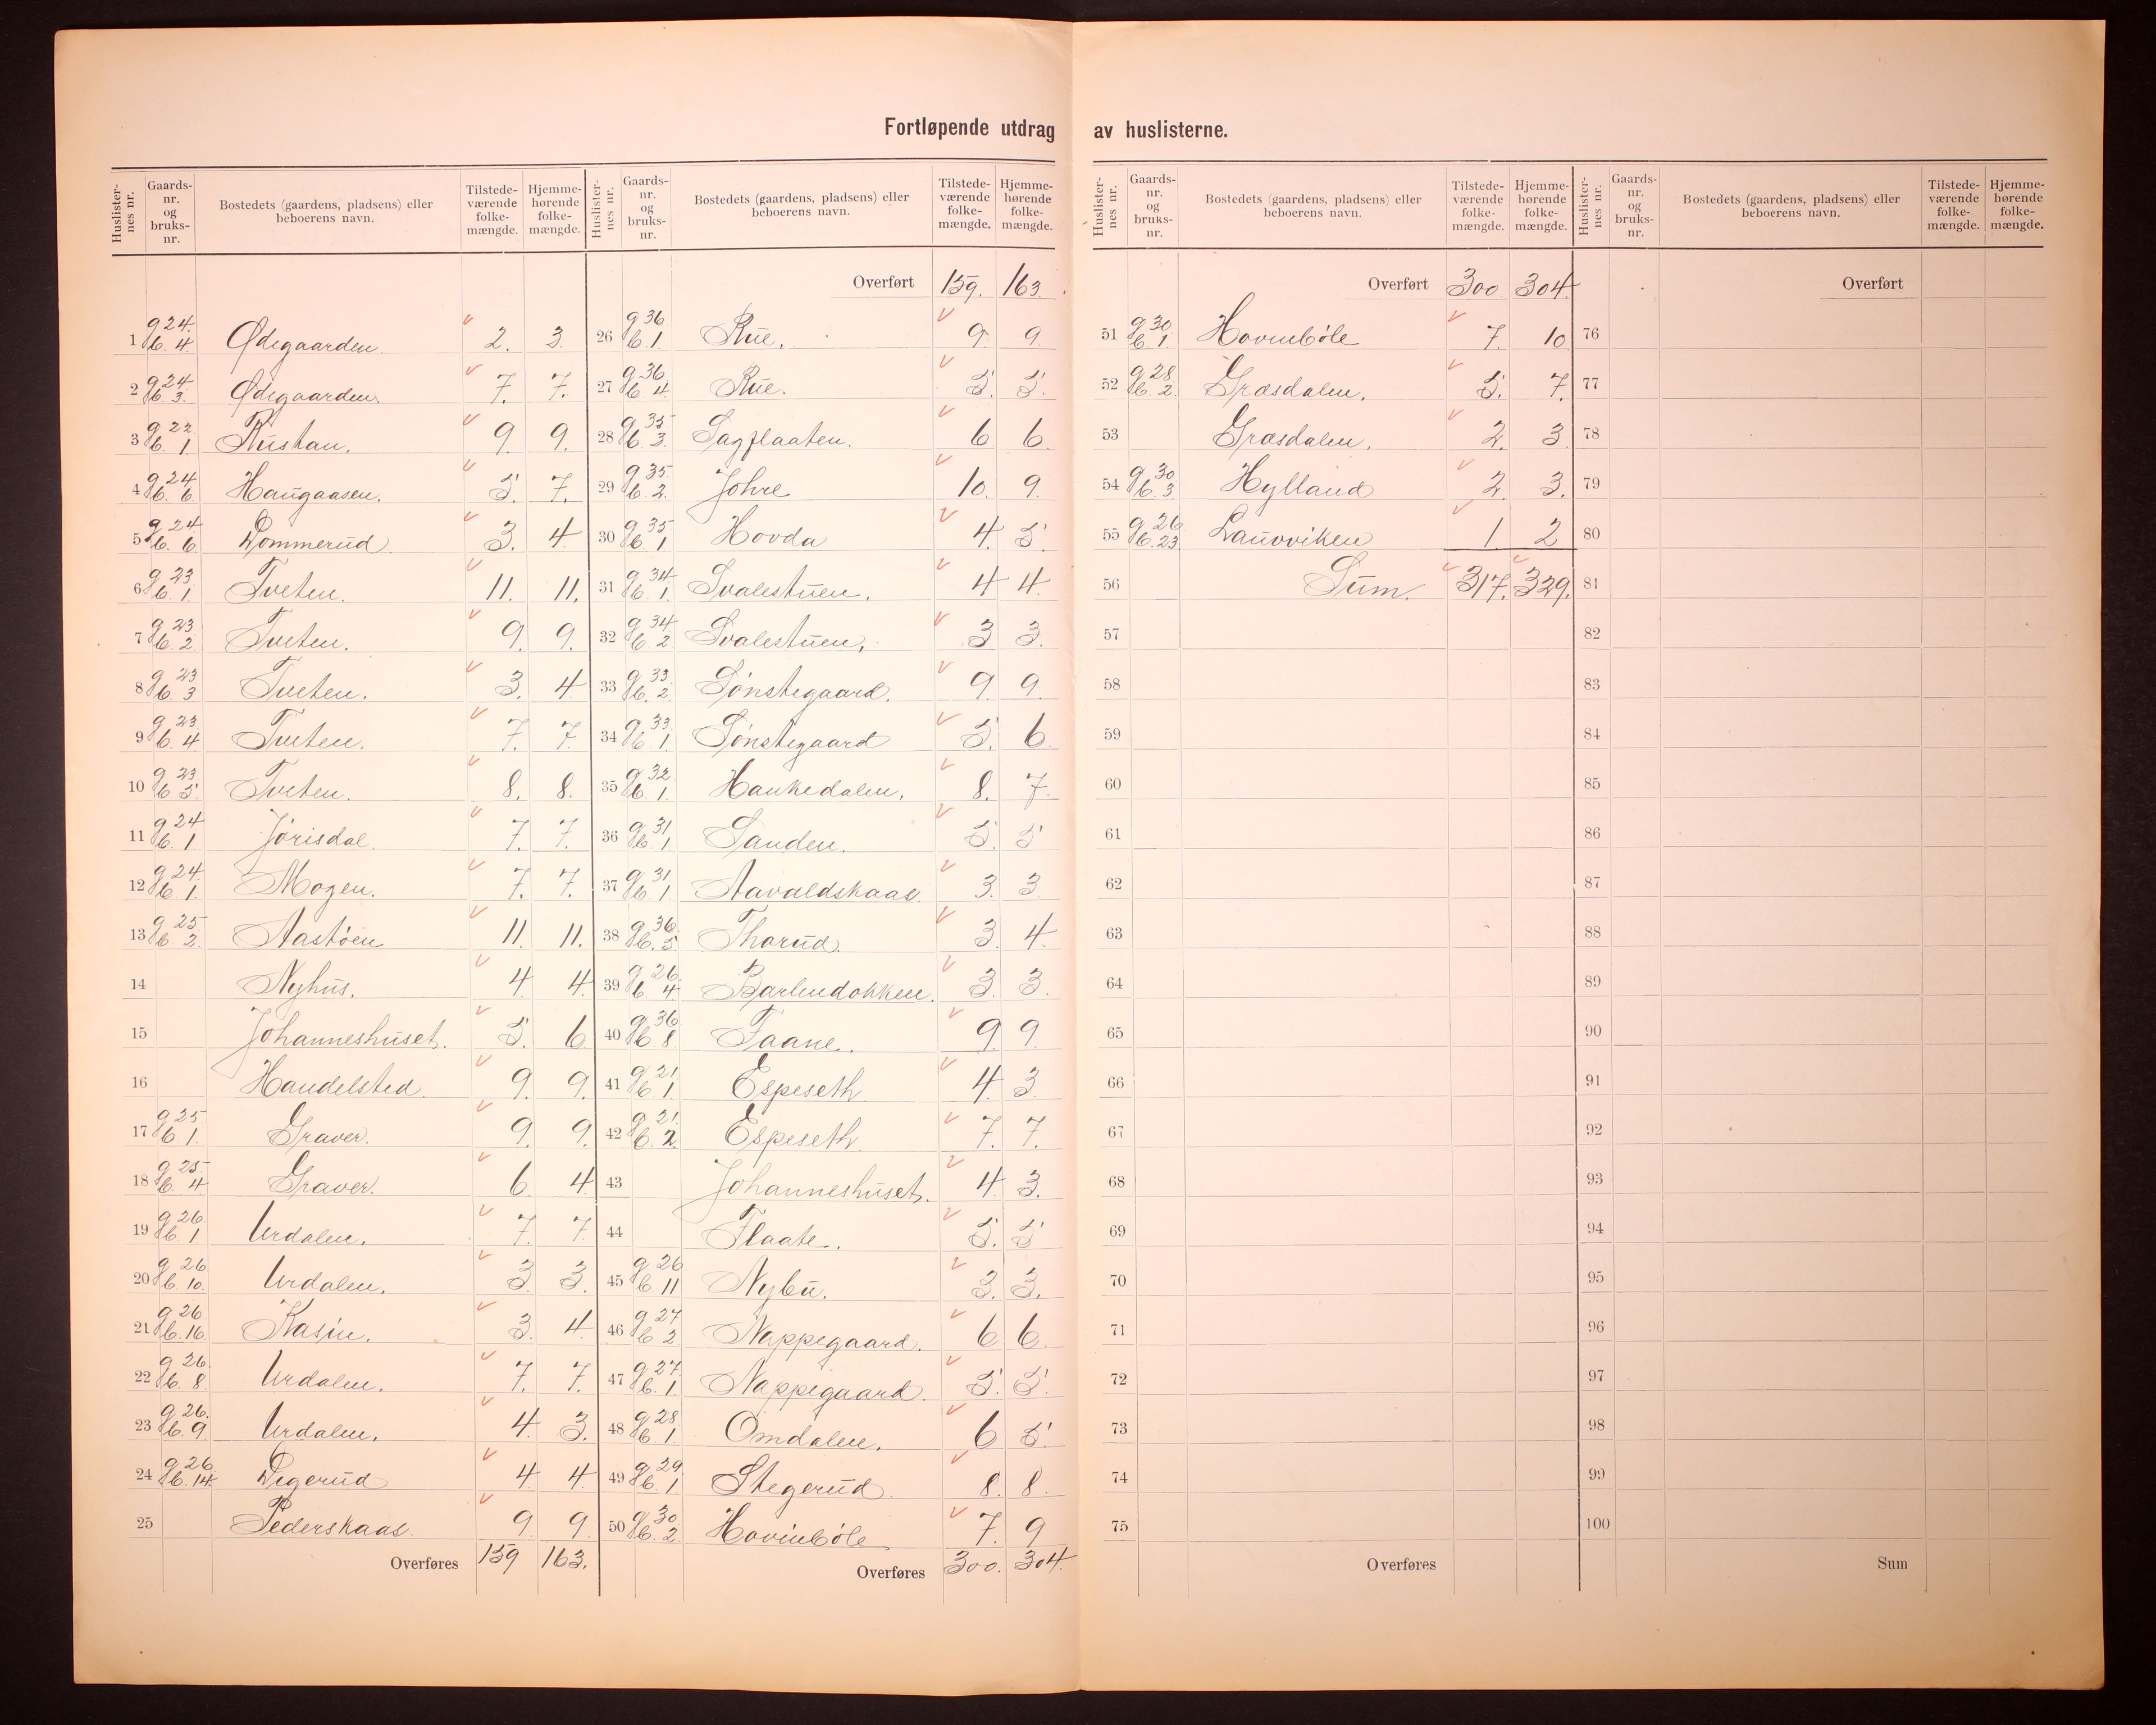 Fortløpende utdrag av huslisterne.
Huslister-nes nr. | Gaards-nr. og bruks-nr. | Bostedets (gaardens, pladsens) eller beboerens navn. | Tilstede-værende folke-mængde. | Hjemme-hørende folke-mængde.
1 g 24. b. 4. Ødegaarden 2. 3.
2 g 24 b. 3. Ødegaarden. 7. 7.
3 g 22 b. 1 Rustan. 9. 9.
4 g 24 b. 6 Haugaasen. 5. 7.
5 g 24 b. 6 Dommerud 3. 4
6 g 23 b. 1. Tveten. 11. 11.
7 g 23 b. 2. Tveten. 9. 9.
8 g 23 b. 3 Tveten. 3. 4
9 g 23 b. 4 Tveten. 7. 7
10 g 23. b 5. Tveten. 8. 8.
11 g 24 b. 1 Jørisdal. 7. 7.
12 g 24. b 1. Mogen. 7. 7.
13 g 25. b. 2. Aastøen 11. 11.
14 Nyhus. 4. 4.
15 Johanneshuset. 5. 6
16 Handelsted. 9. 9.
17 g 25 b 1. Graver. 9. 9.
18 g 25. b. 4 Graver. 6. 4
19 g 26 b 1 Urdalen. 7. 7.
20 g 26 b. 10. Urdalen. 3. 3.
21 g 26. b. 16 Kasin. 3. 4
22 g 26. b. 8. Urdalen. 7. 7.
23 g 26. b. 9. Urdalen. 4. 3.
24 g 26 b. 14. Degerud 4. 4.
25 Pederskaas. 9. 9.
Overføres 159 163.
Huslister-nes nr. | Gaards-nr. og bruks-nr. | Bostedets (gaardens, pladsens) eller beboerens navn. | Tilstede-værende folke-mængde. | Hjemme-hørende folke-mængde.
Overført 159. 163.
26 g 36 b. 1 Rue. 9. 9.
27 g 36 b. 4. Rue. 5. 5.
28 g 35 b. 3. Sagflaaten. 6 6.
29 g 35. b. 2. Johre 10. 9.
30 g 35 b. 1 Hovda 4. 5.
31 g 34. b. 1. Svalestuen. 4 4.
32 g 34 b. 2. Svalestuen. 3 3.
33 g 33. b. 2 Sønstegaard. 9. 9.
34 g 33 b. 1. Sønstegaard 5. 6.
35 g 32 b. 1. Haukedalen. 8. 7.
36 g 31 b. 1 Sanden. 5. 5
37 g 31 b 1 Aavaldskaas. 3. 3.
38 g 36. b. 5 Thorud. 3. 4.
39 g 26. b 4 Barlindokken. 3. 3.
40 g 36 b. 8. Faane. 9. 9.
41 g 21. b 1. Espeseth 4. 3.
42 g 21. b. 2. Espeseth. 7. 7.
43 Johanneshuset. 4. 3.
44 Flaate. 5. 5
45 g 26 b 11 Nybu. 3. 3.
46 g 27 b. 2 Nappegaard. 6 6.
47 g 27. b. 1 Nappegaard. 5. 5.
48 g 28 b 1. Omdalen. 6 5.
49 g 29. b. 1 Stegerud. 8. 8.
50 g 30 b. 2. Hovinbøle 7. 9
Overføres 300. 304.
Huslister-nes nr. | Gaards-nr. og bruks-nr. | Bostedets (gaardens, pladsens) eller beboerens navn. | Tilstede-værende folke-mængde. | Hjemme-hørende folke-mængde.
Overført 300 304.
51 g 30 b 1. Hovinbøle 7. 10
52 g 28 b. 2. Græsdalen. 5. 7.
53 Græsdalen. 2. 3.
54 g 30 b. 3. Hylland 2. 3.
55 g 26 b. 23. Lauvviken 1. 2
56 Sum. 317. 329.
57
58
59
60
61
62
63
64
65
66
67
68
69
70
71
72
73
74
75
Overføres
Huslister-nes nr. | Gaards-nr. og bruks-nr. | Bostedets (gaardens, pladsens) eller beboerens navn. | Tilstede-værende folke-mængde. | Hjemme-hørende folke-mængde.
Overført
76
77
78
79
80
81
82
83
84
85
86
87
88
89
90
91
92
93
94
95
96
97
98
99
100
Sum